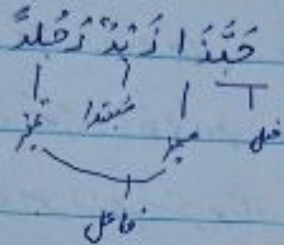 حَبَّذَا زَيْدٌ رَجُلًا
فعل مميز مبتدا تميز
فاعل